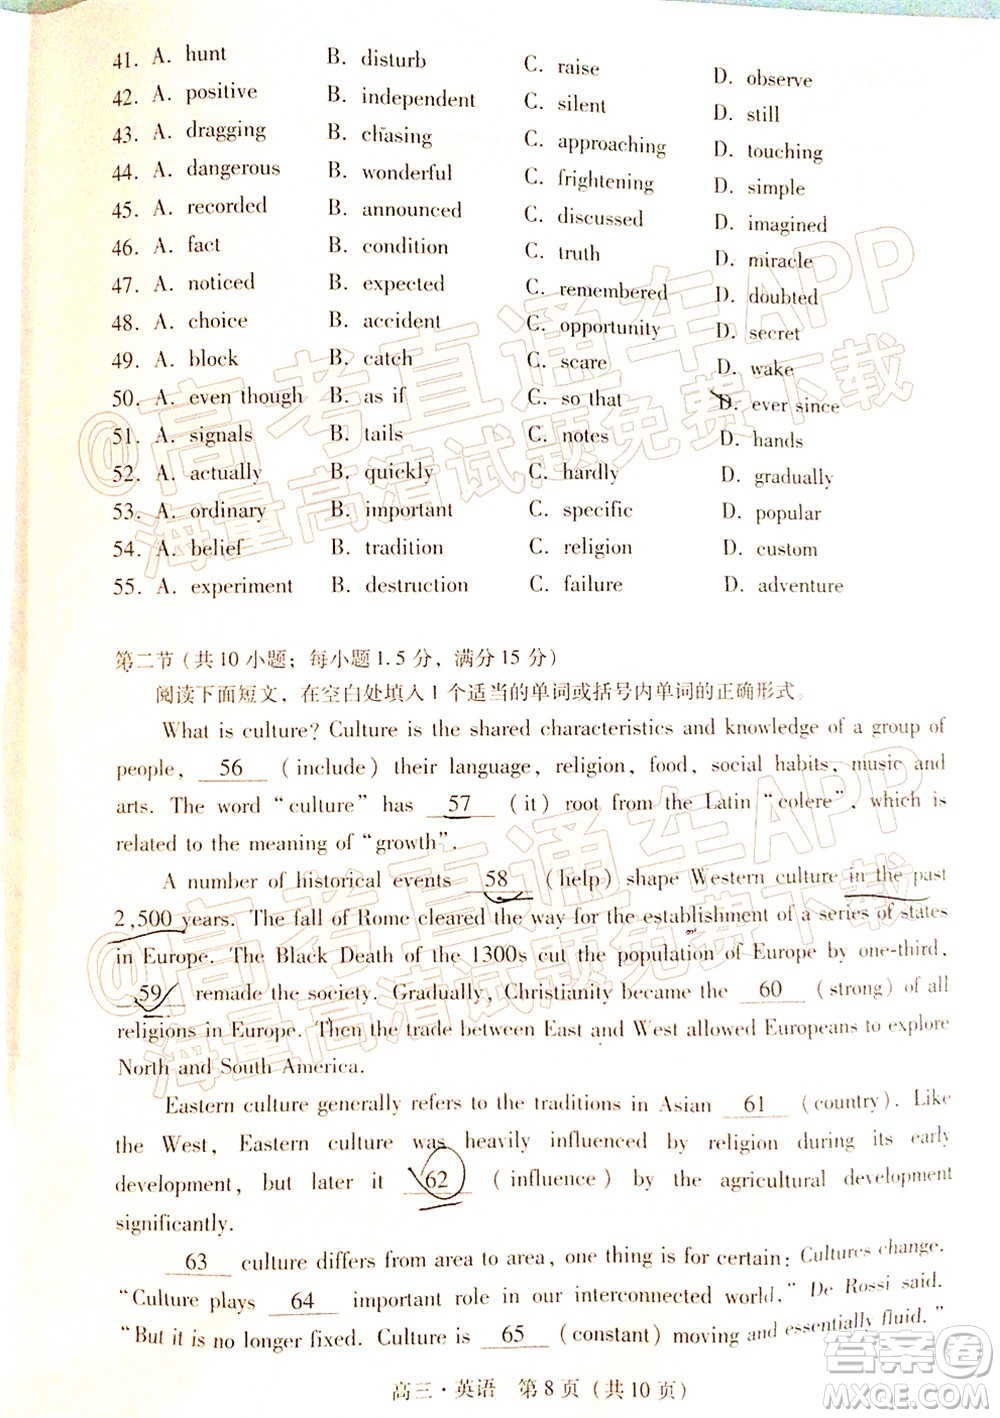 41. A. hunt B. disturb C. raise D. observe
42. A. positive B. independent C. silent D. still
43. A. dragging B. chasing C. approaching D. touching
44. A. dangerous B. wonderful C. frightening D. simple
45. A. recorded B. announced C. discussed D. imagined
46. A. fact B. condition C. truth D. miracle
47. A. noticed B. expected C. remembered D. doubted
48. A. choice B. accident C. opportunity D. secret
49. A. block B. catch C. scare D. wake
50. A. even though B. as if C. so that D. ever since
51. A. signals B. tails C. notes D. hands
52. A. actually B. quickly C. hardly D. gradually
53. A. ordinary B. important C. specific D. popular
54. A. belief B. tradition C. religion D. custom
55. A. experiment B. destruction C. failure D. adventure
第二节(共10小题；每小题1.5分，满分15分)
阅读下面短文，在空白处填入1个适当的单词或括号内单词的正确形式。
What is culture? Culture is the shared characteristics and knowledge of a group of
people, 56 (include) their language, religion, food, social habits, music and
arts. The word “culture” has 57 (it) root from the Latin “colere”, which is
related to the meaning of “growth”.
A number of historical events 58 (help) shape Western culture in the past
2,500 years. The fall of Rome cleared the way for the establishment of a series of states
in Europe. The Black Death of the 1300s cut the population of Europe by one-third,
59 remade the society. Gradually, Christianity became the 60 (strong) of all
religions in Europe. Then the trade between East and West allowed Europeans to explore
North and South America.
Eastern culture generally refers to the traditions in Asian 61 (country). Like
the West, Eastern culture was heavily influenced by religion during its early
development, but later it 62 (influence) by the agricultural development
significantly.
63 culture differs from area to area, one thing is for certain: Cultures change.
“Culture plays 64 important role in our interconnected world.” De Rossi said.
“But it is no longer fixed. Culture is 65 (constant) moving and essentially fluid.”
高三·英语 第8页(共10页)
@高考直通车APP
海量高清试题免费下载
@高考直通车APP
海量高清试题免费下载
答案圈
MXQE.COM